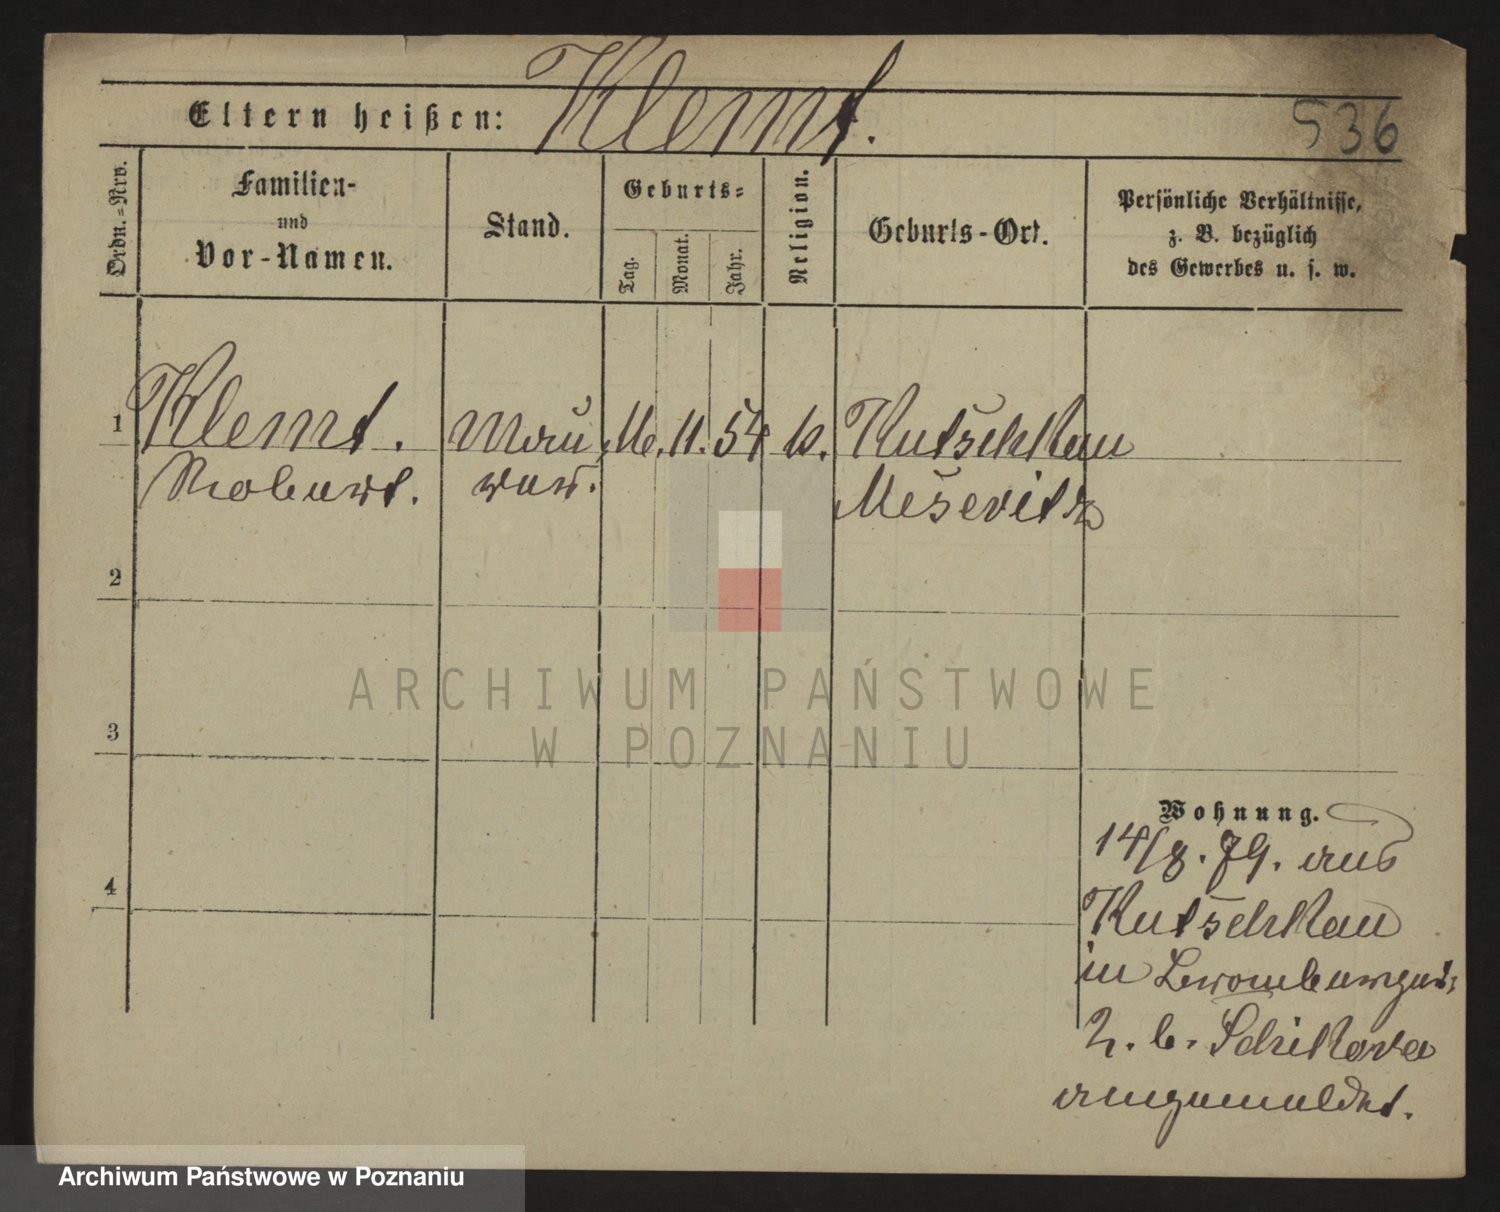 Eltern heißen: Klemt.
536
Ordn.=Nro.
Familien-
und
Vor-Namen.
Stand.
Geburts=
Tag.
Monat.
Jahr.
Religion.
Geburts-Ort.
Persönliche Verhältnisse,
z. B. bezüglich
des Gewerbes u. s. w.
1 Klemt. Mau 11. 54 k. Kutschkau
Robert. rer. Meseritz
2
3
4
Wohnung.
14/8. 79. aus
Kutschkau
in
2. b.
angemeldet.
ARCHIWUM PAŃSTWOWE
W POZNANIU
Archiwum Państwowe w Poznaniu